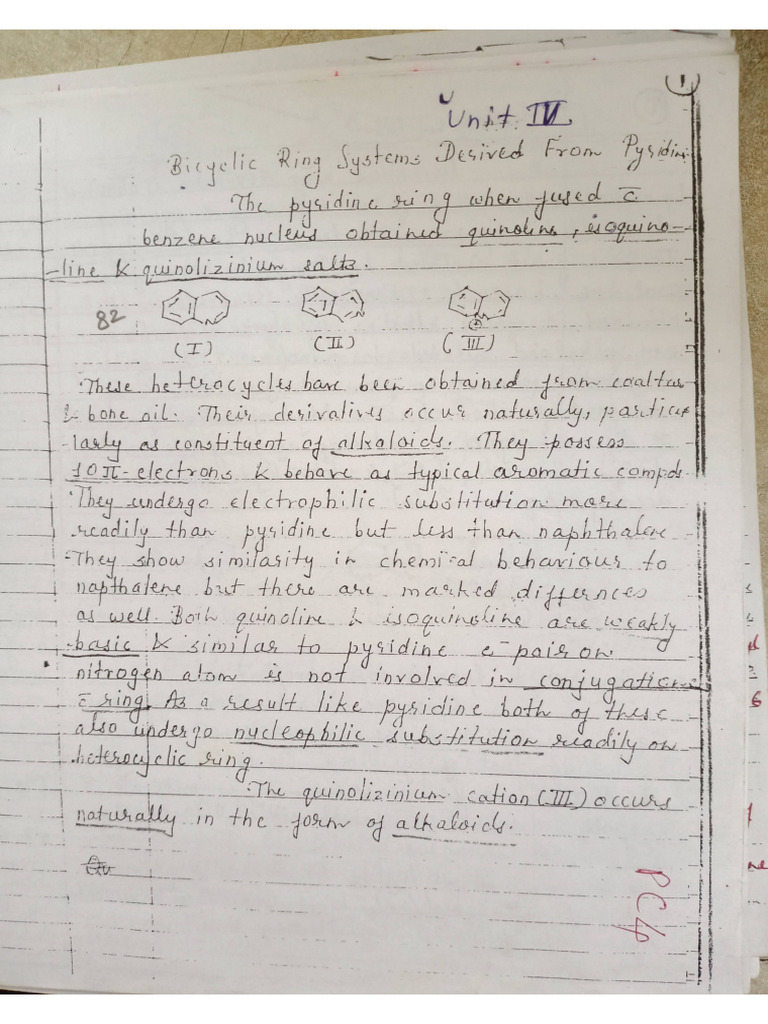 1
Unit IV
Bicyclic Ring Systems Desived From Pysidine
The pysidine ring when fused c̄
benzene nucleus obtained quinoline, isoquino-
-line & quinolizinium salts.
82
N N N ⊕
(I) (II) (III)
These heterocycles have been obtained from coaltar
& bone oil. Their derivatives occur naturally, particu
-larly as constituent of alkaloids. They possess
10π-electrons & behave as typical aromatic compds.
They undergo electrophilic substitution more
readily than pyridine but less than naphthalene
They show similarity in chemical behaviour to
napthalene but there are marked differnces
as well. Both quinoline & isoquinoline are weakly
basic & similar to pyridine e⁻ pair on
nitrogen atom is not involved in conjugation
c̄ ring. As a result like pyridine both of these
also undergo nucleophilic substitution readily on
heterocyclic ring.
The quinolizinium cation (III) occurs
naturally in the form of alkaloids.
PC4